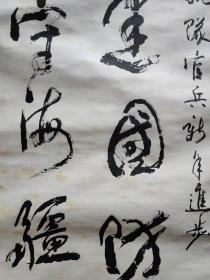 隊官兵新年進步
建國防
守海疆